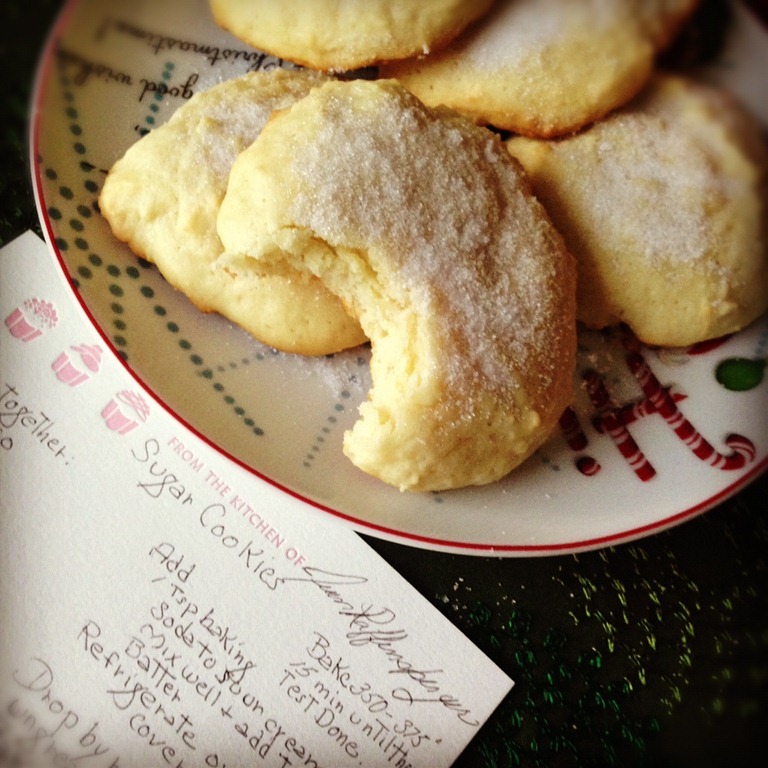 Christmastime!
good wishes
together:
FROM THE KITCHEN OF
Sugar Cookies
Add
1 Tsp baking
Soda to sour cream
Mix well + add t
Batter
Refrigerate o
cover
Drop by
Bake 350-375°
15 min until th
Test Done.